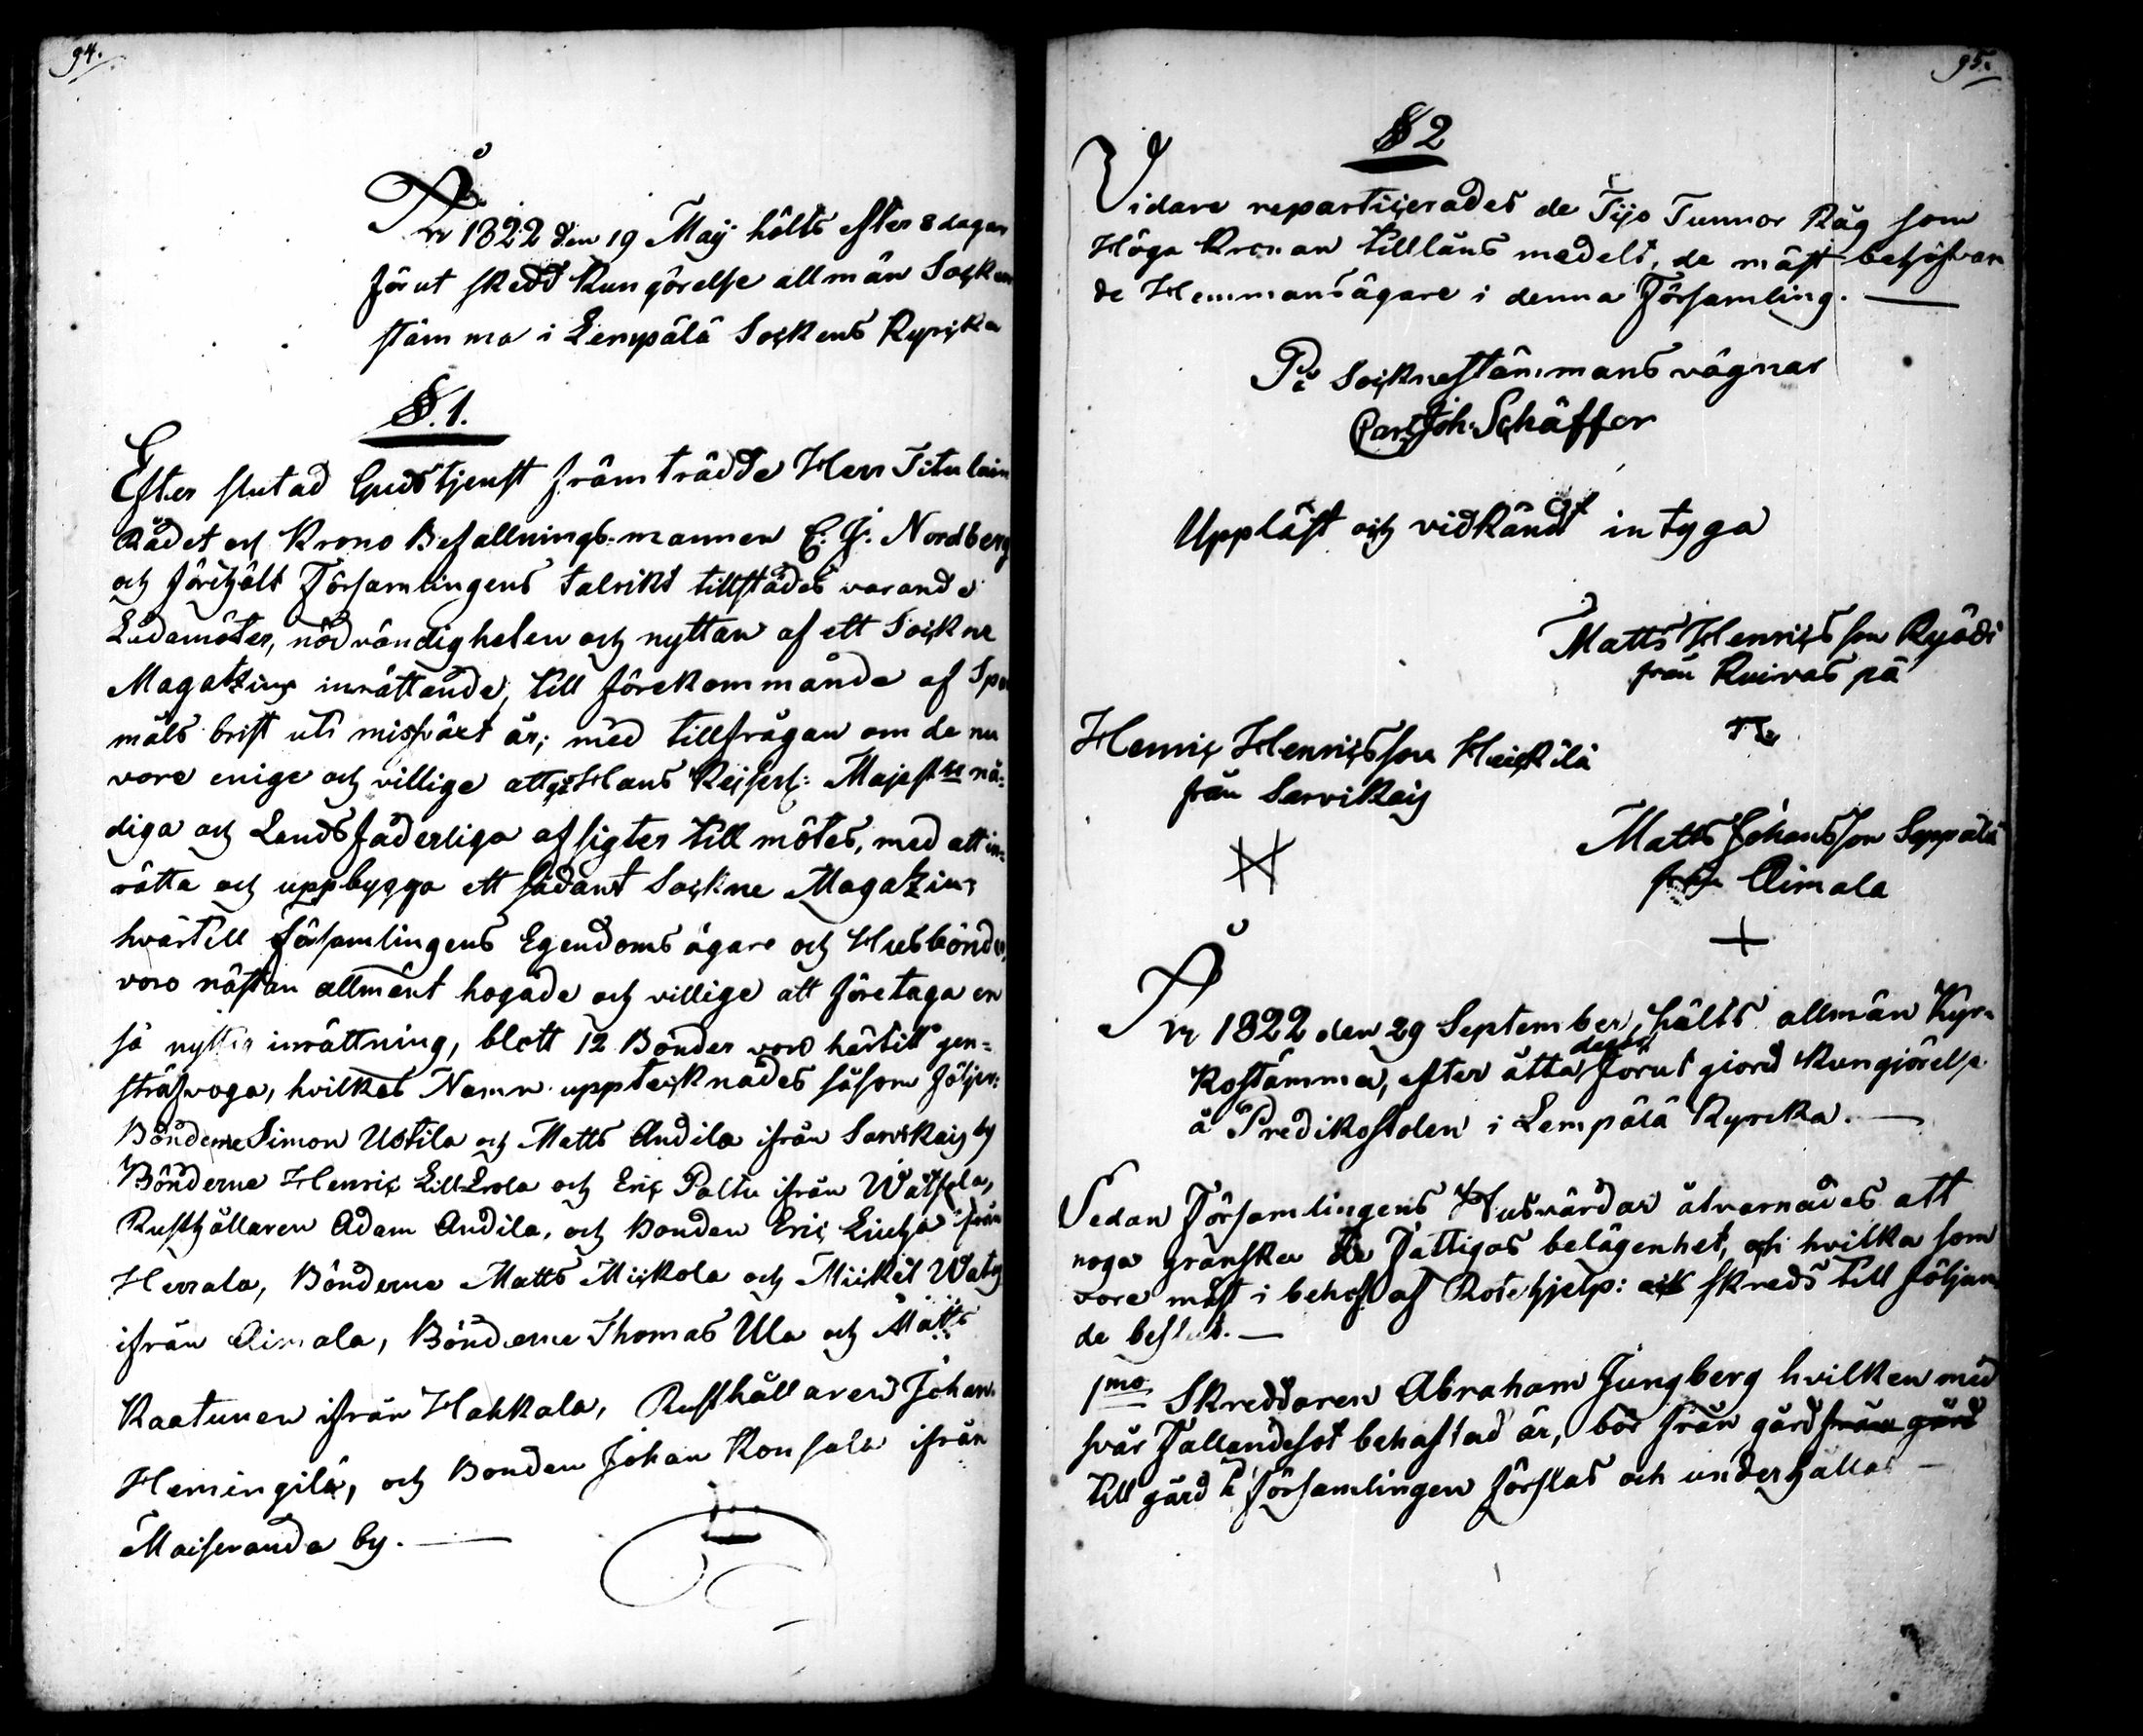 94.
År 1822 den 19 Maij hölts efter 8 dagar
förut skedd Kungörelse allmän Socken
stämma i Lempälä Sockens Kyrcka
§. 1.
Efter slutad Gudstjenst framträdde Herr Titulair
Rådet och Krono Befallnings-mannen E. J. Nordberg
och förehölt Församlingens talrikt tillstädes varande
Ledamöter, nödvändigheten och nyttan af ett Sockne
Magatzins inrättande, till förekommande af Spa
måls brist uti missväxt år; med tillfrågan om de nu
vore enige och villige att gå Hans Keiserl: Majest:ts nå-
diga och Landsfäderliga afsigter till mötes, med att in-
rätta och uppbygga ett sådant Sockne Magatzin;
hvartill Församlingens Egendoms ägare och Husbönder
voro nästan allment hogade och villige att företaga en
så nyttig inrättning, blott 12 Bönder voro härtill gen-
sträfvoga, hvilkas Namn uppteknades såsom följer:
Bönderne Simon Ustila och Matts Andila ifrån Sarvikais by
Bönderne Henric Lill Erola och Eric Paltu ifrån Watsela,
Rusthållaren Adam Andila, och Bonden Eric Liuhja ifrån
Herrala, Bönderne Matts Mickola och Mickel Waty
ifrån Aimala, Bönderne Thomas Ula och Matts
Kaatunen ifrån Hakkala, Rusthållaren Johan
Hemingilä, och Bonden Johan Konsala ifrån
Maiseranda by. —
95.
§ 2
Vidare repartitierades de Tijo Tunnor Råg som
Höga Kronan till låns medelt, de mäst behöfvan
de Hemmansägare i denna Församling. —
På Socknestämmans vägnar
Carl Joh. Schäffer
Uppläst och vidkändt intyga
Matts Henricsson Kyödi
från Kuivas pä
Henric Henricsson Heickilä
från Sarvikais
Matts Johansson Seppälä
från Aimala
År 1822 den 29 September, hälts allmän Kyr-
kostämma, efter åtta dagar förut giord kungjörelse
å Predikostolen i Lempälä Kyrcka. —
Sedan Församlingens Husvärdar åtvarnades att
noga granska de Fattigas belägenhet, och hvilka som
vore mäst i behof af Rotehjelp: och skreds till följan
de beslut. —
1mo Skreddaren Abraham Jungberg hvilken med
svår Fallandesot behaftad är, bör från gård från gård
till gård i Församlingen förslas och underhållas —